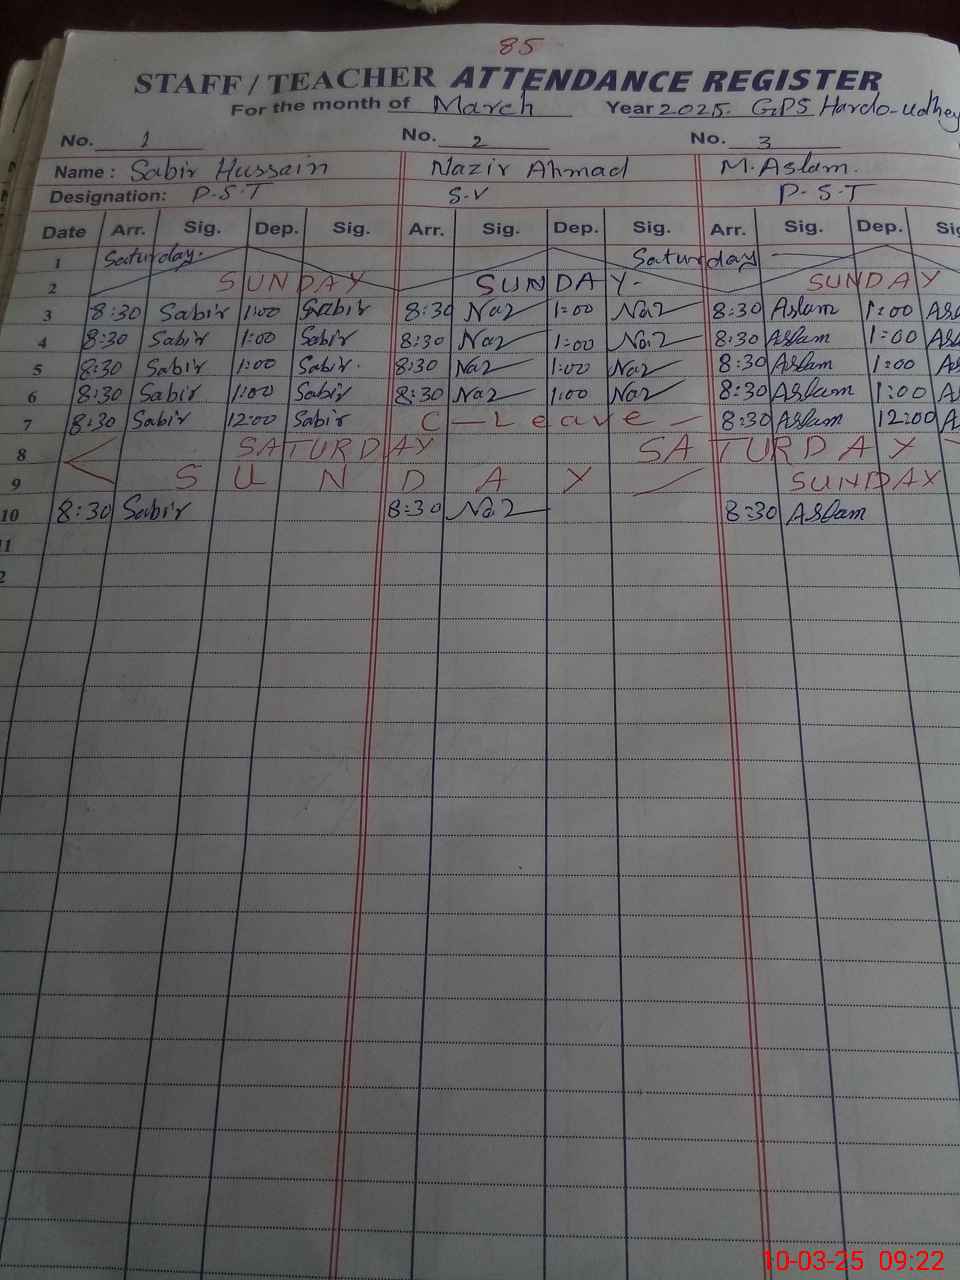 85
STAFF / TEACHER ATTENDANCE REGISTER
For the month of March Year 2025. GPS Hardo-
No. 1 No. 2 No. 3
Name: Sabir Hussain Nazir Ahmad M. Aslam.
Designation: P-S-T S-V P-S-T
Date Arr. Sig. Dep. Sig. Arr. Sig. Dep. Sig. Arr. Sig. Dep. Sig
1 Saturday. Saturday
2 SUNDAY SUNDAY- SUNDAY
3 8:30 Sabir 1:00 Sabir 8:30 Naz 1:00 Naz 8:30 Aslam 1:00 As
4 8:30 Sabir 1:00 Sabir 8:30 Naz 1:00 Naz 8:30 Aslam 1:00 As
5 8:30 Sabir 1:00 Sabir. 8:30 Naz 1:00 Naz 8:30 Aslam 1:00 As
6 8:30 Sabir 1:00 Sabir 8:30 Naz 1:00 Naz 8:30 Aslam 1:00 As
7 8:30 Sabir 12:00 Sabir C-Leave- 8:30 Aslam 12:00 A
8 SATURDAY SATURDAY
9 SUNDAY SUNDAY
10 8:30 Sabir 8:30 Naz 8:30 Aslam
11
2
10-03-25 09:22